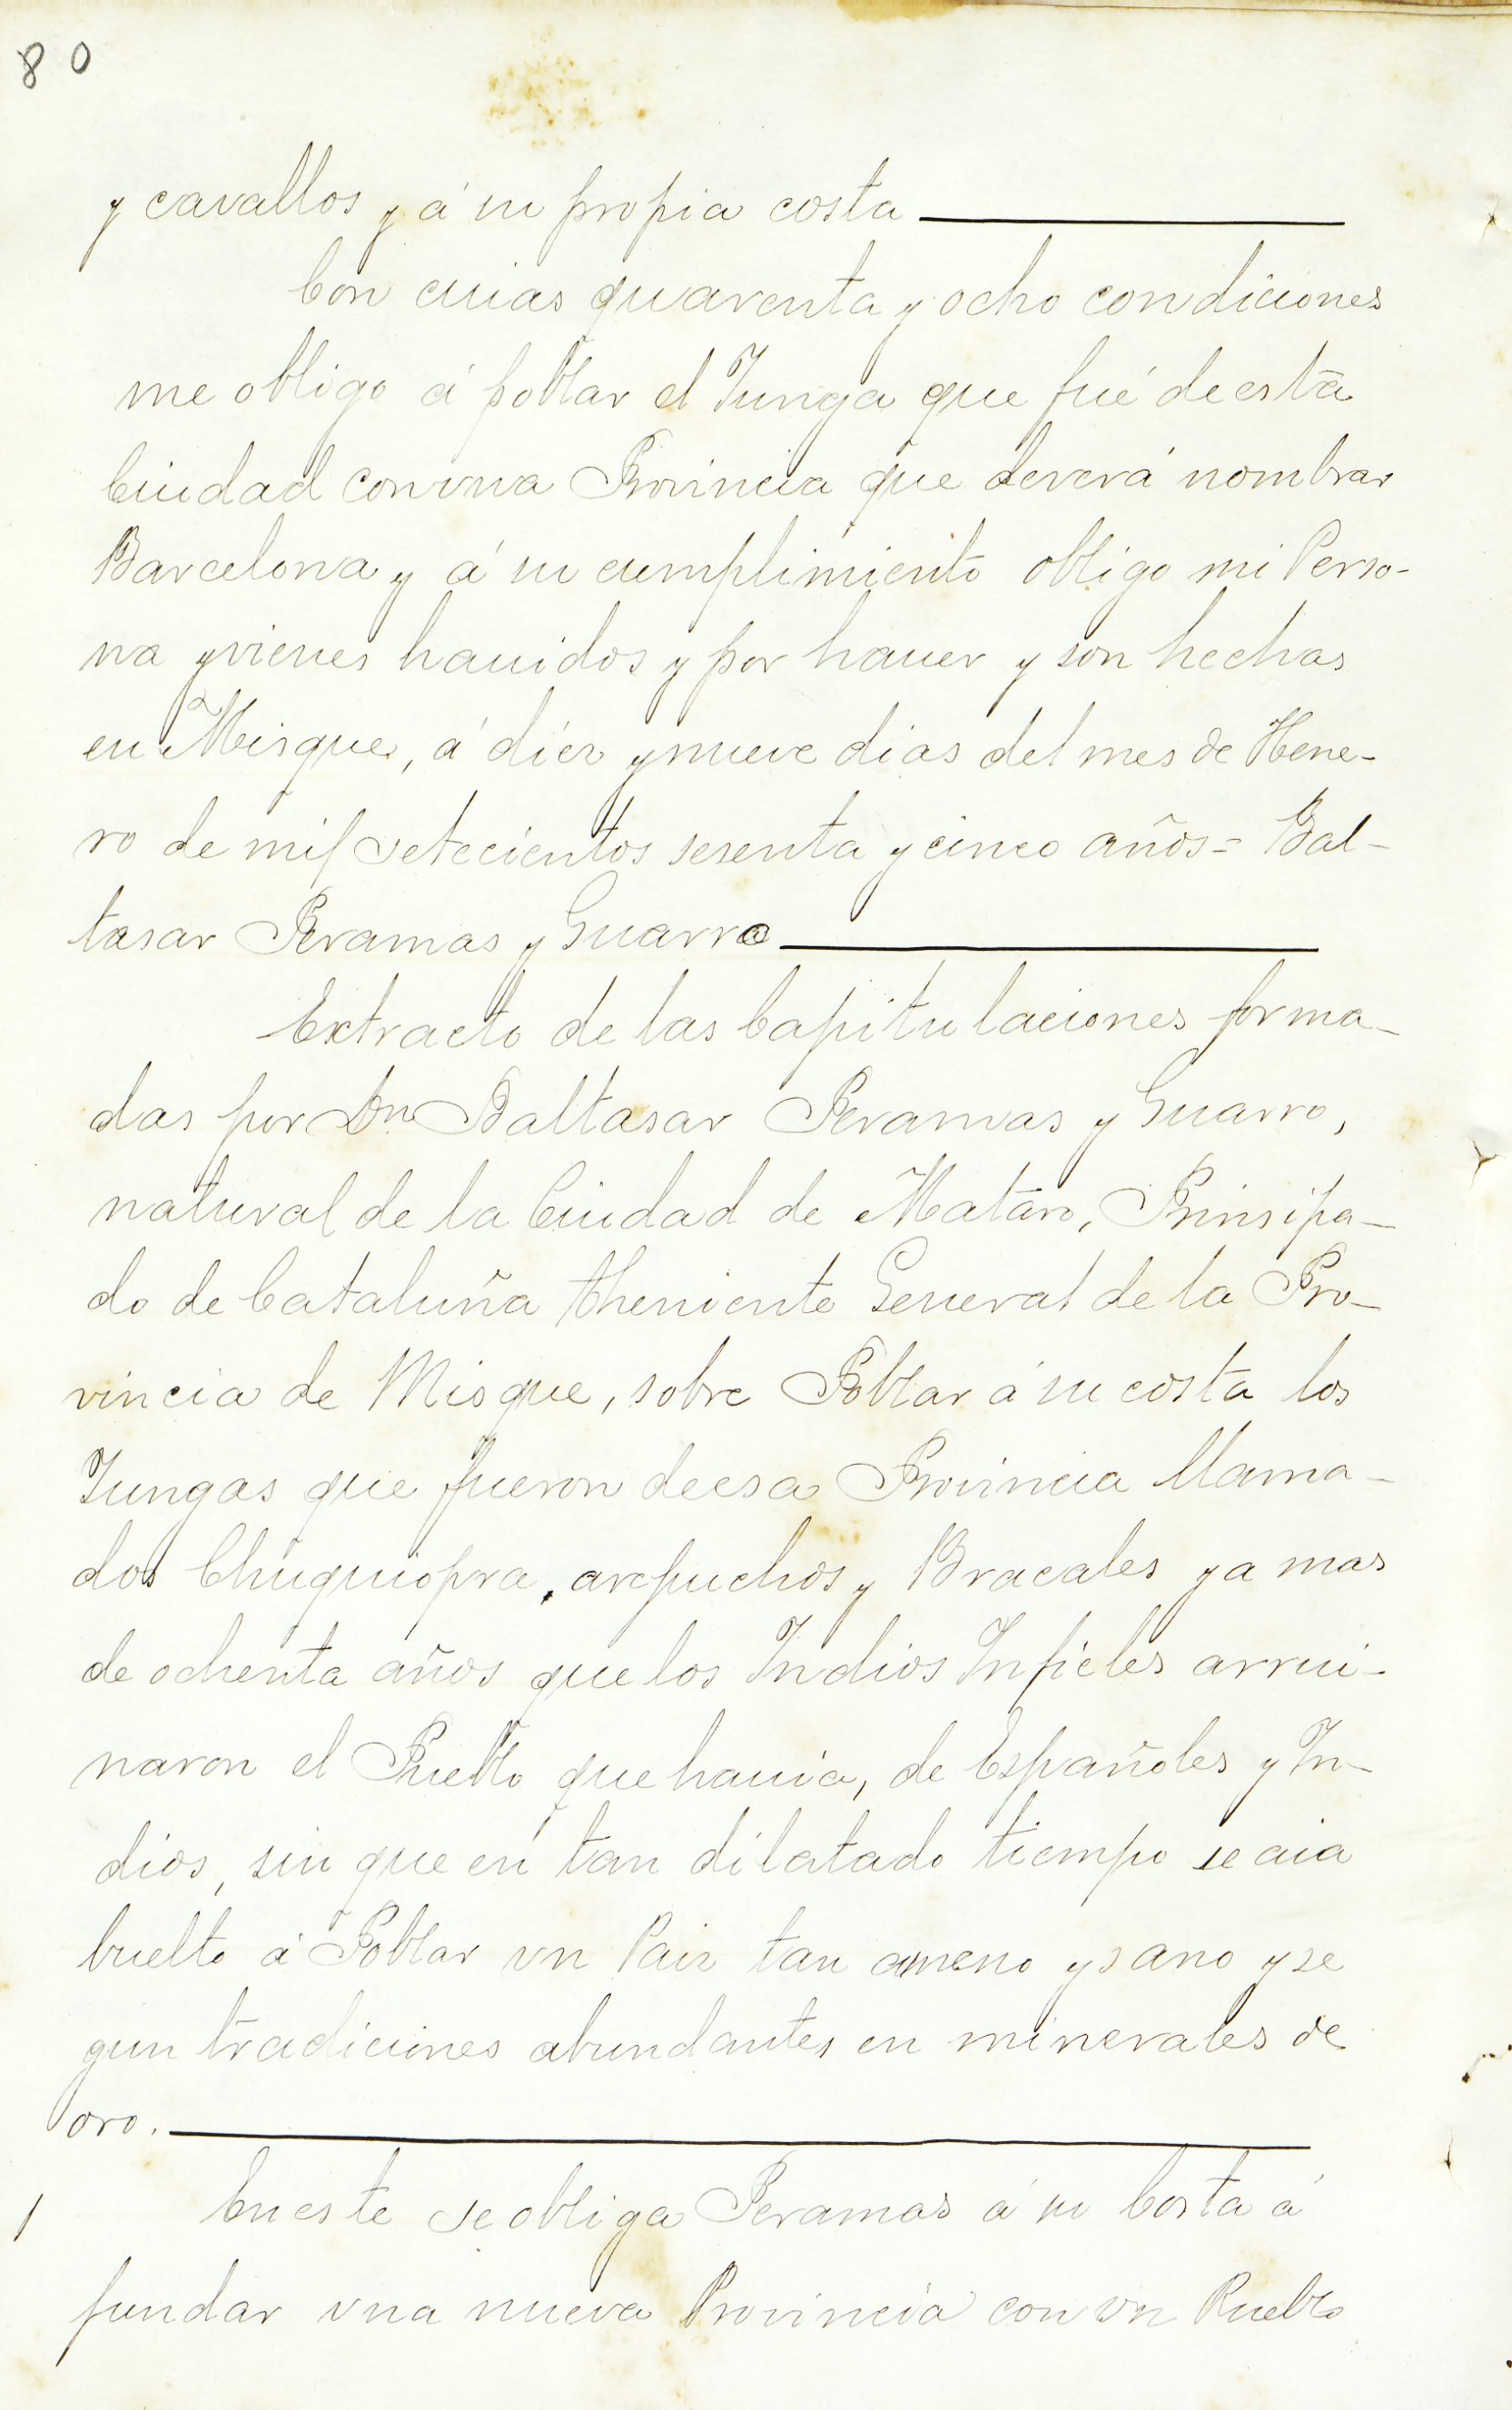 80
y cavallos y á su propia costa
Con cuias quarenta y ocho condiciones
me obligo á poblar el Yunga que fué de esta
Ciudad con vna Provincia que deverá nombrar
Barcelona y á su cumplimiento obligo mi Perso-
na y vienes hauidos y por hauer y son hechas
en Misque, á diez y nueve dias del mes de Hene-
ro de mil setecientos sesenta y cinco años = Bal-
tasar Peramas y Guarro
Extracto de las Capitulaciones forma-
das por Dn Baltasar Peramas y Guarro,
natural de la Ciudad de Mataro, Prinsipa-
do de Cataluña theniente General de la Pro-
vincia de Misque, sobre Poblar á su costa los
Yungas que fueron de esa Provincia llama-
dos Chuquiopra, arepuchos y Bracales ya mas
de ochenta años que los Indios Infieles arrui-
naron el Pueblo que hauia, de Españoles y In-
dios, sin que en tan dilatado tiempo se aia
buelto á Poblar vn Pais tan ameno y sano y se
gun tradiciones abundantes en minerales de
oro.
1 En este se obliga Peramas á su Costa á
fundar vna nueva Provincia con vn Pueblo